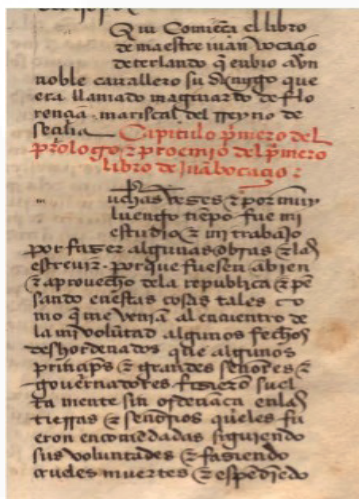 Qui Comiença el libro
de maestre iuan vocaçio
de certaldo que enbio a vn
noble cauallero su amigo que
era llamado maginardo de flo
rençia . mariscal del rreyno de
seçilia
Capitulo primero del
prologo & prohemio del primero
libro de iuan bocaçio :
uchas vezes & por muy
luengo tienpo fue mi
estudio & mi trabajo
por fazer algunas obras & las
escreuir . porque fuesen a bien
& aprouecho dela republica & pen
sando en estas cosas tales co
mo que venian al encuentro de
la mi voluntad algunos fechos
deshordenados que algunos
prinçipes & grandes señores &
gouernadores fizieron suel
ta mente sin ordenança en las
tierras & señorios que les fu
eron encomendadas siguiendo
sus voluntades & faziendo
crueles muertes & espendiendo